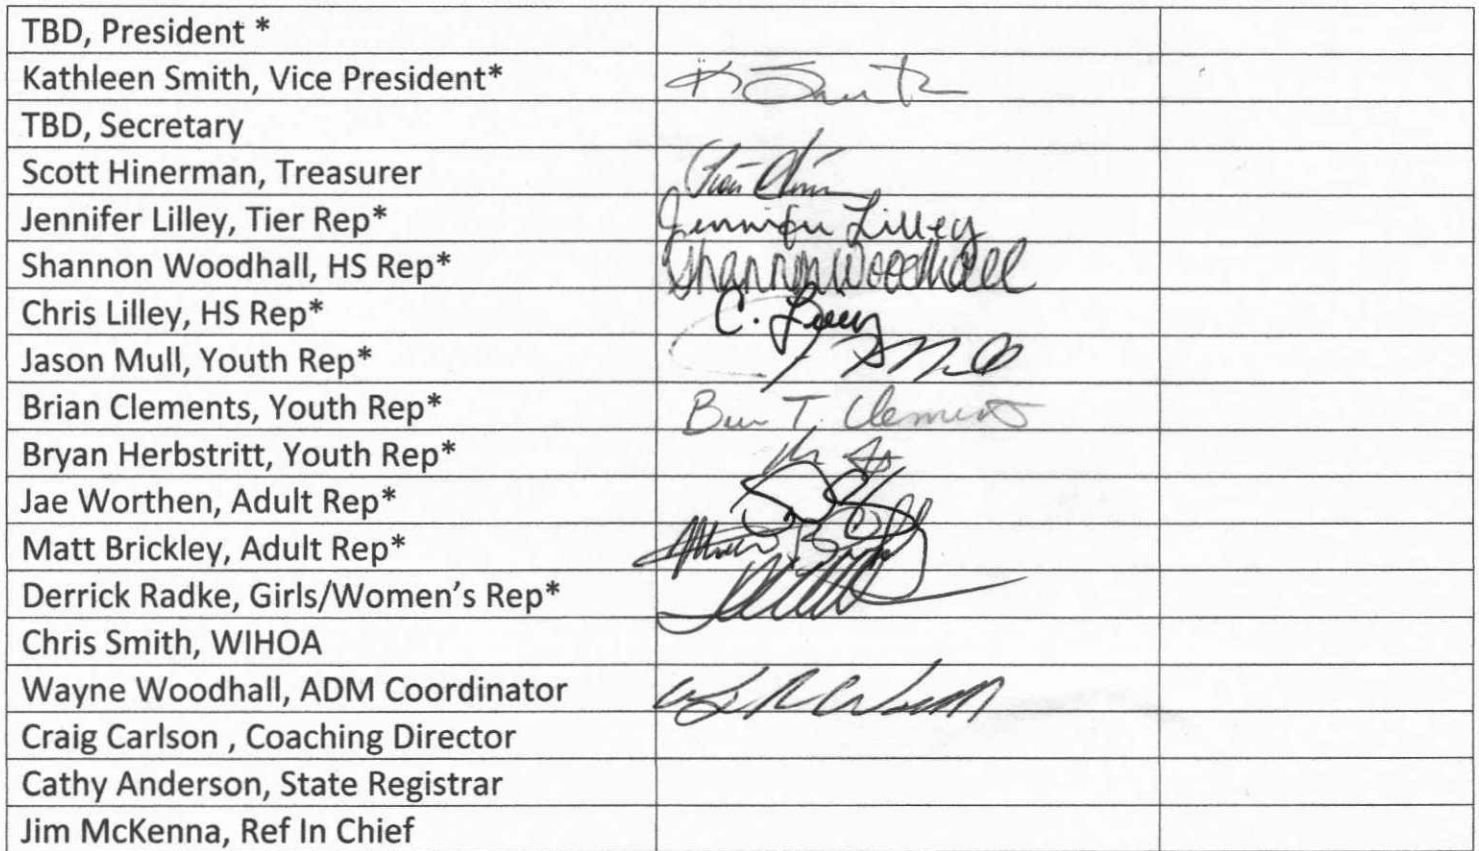 TBD, President *
Kathleen Smith, Vice President* K Smith
TBD, Secretary
Scott Hinerman, Treasurer
Jennifer Lilley, Tier Rep* Jennifer Lilley
Shannon Woodhall, HS Rep* Shannon Woodhall
Chris Lilley, HS Rep* C. Lilley
Jason Mull, Youth Rep*
Brian Clements, Youth Rep* Brian T. Clements
Bryan Herbstritt, Youth Rep*
Jae Worthen, Adult Rep*
Matt Brickley, Adult Rep*
Derrick Radke, Girls/Women's Rep*
Chris Smith, WIHOA
Wayne Woodhall, ADM Coordinator
Craig Carlson , Coaching Director
Cathy Anderson, State Registrar
Jim McKenna, Ref In Chief